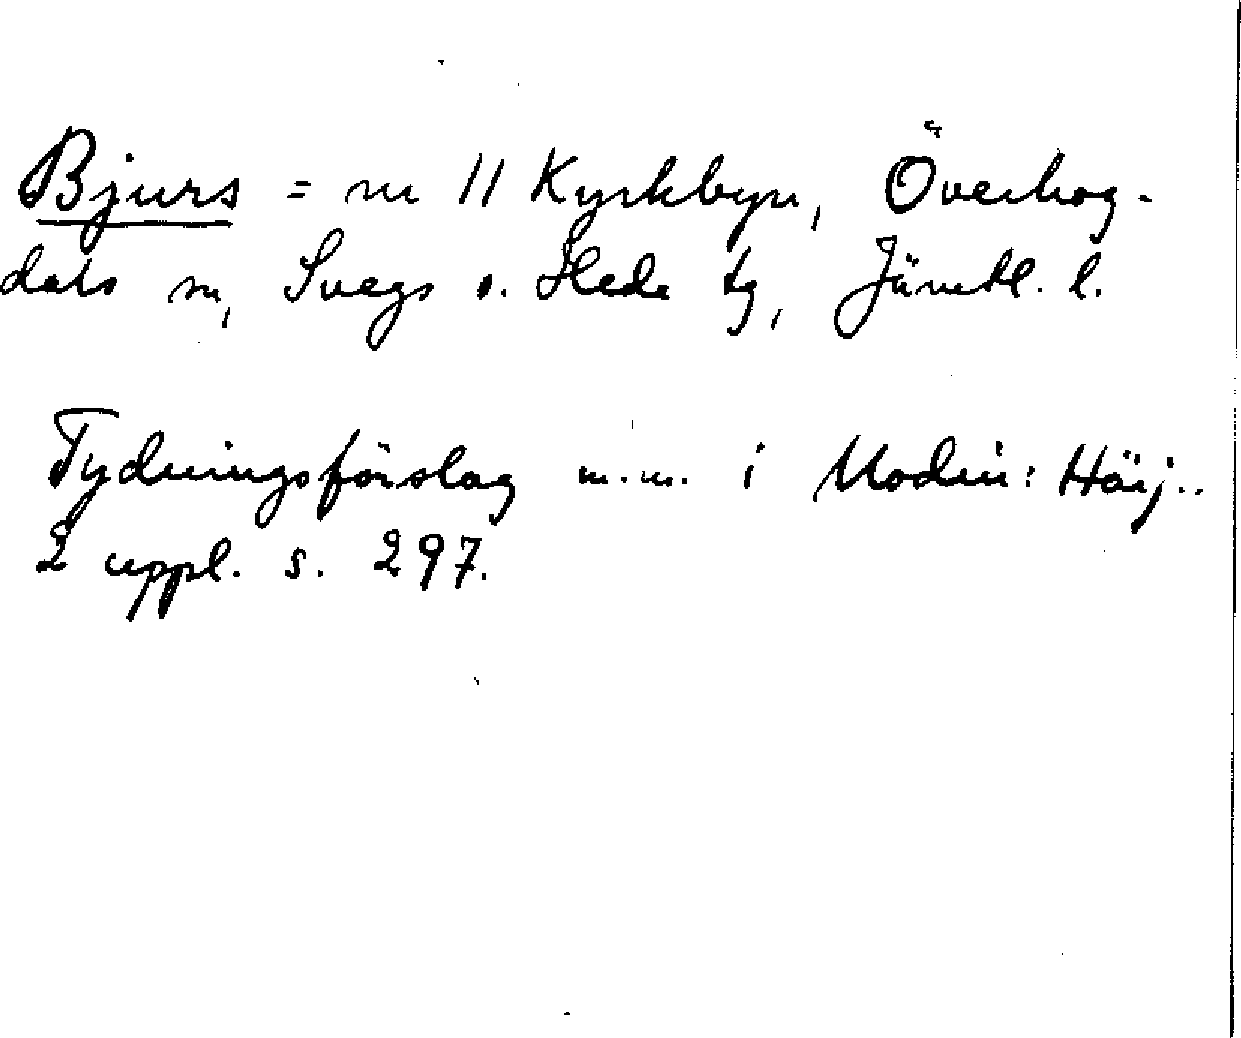 Bjurs = nr 11 Kyrkbyn, Överhog-
dals sn, Svegs o. Hede tg, Jämtl. l.
Tydningsförslag m.m. i Modin: Härj..
2 uppl. s. 297.